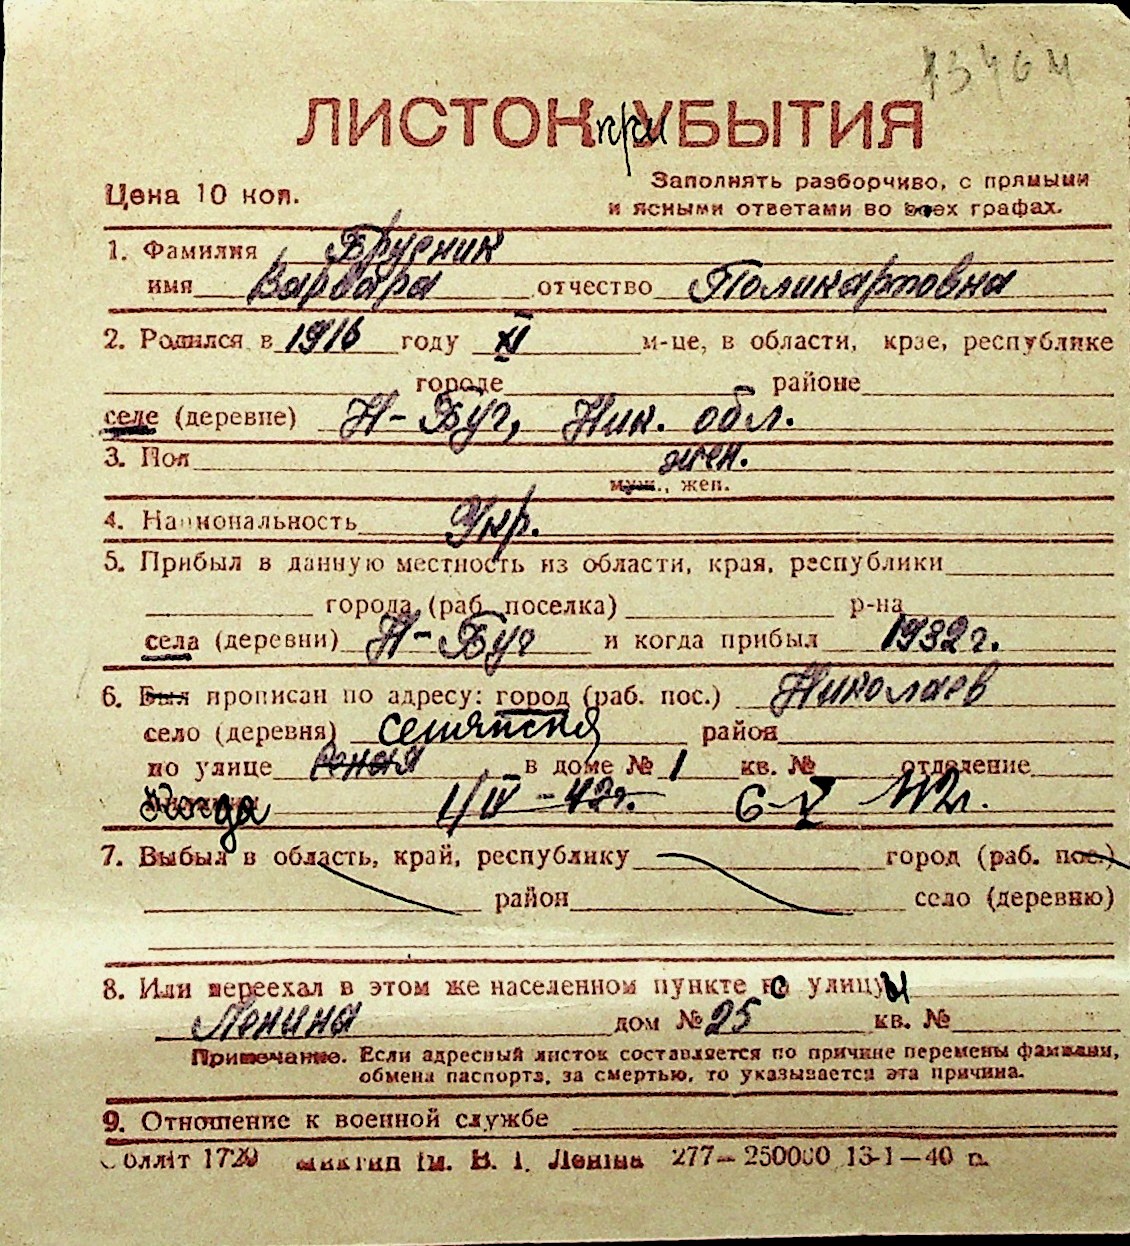 13464
ЛИСТОК при УБЫТИЯ
Цена 10 коп.
Заполнять разборчиво, с прямыми
и ясными ответами во всех графах.
1. Фамилия Брусник
имя Варвара отчество Поликарповна
2. Родился в 1916 году XI м-це, в области, крае, республике
городе районе
селе (деревне) Н-Буг, Ник. обл.
3. Пол жен.
муж., жен.
4. Национальность Укр.
5. Прибыл в данную местность из области, края, республики
города (раб. поселка) р-на
села (деревни) Н-Буг и когда прибыл 1932 г.
6. Был прописан по адресу: город (раб. пос.) Николаев
село (деревня) район
по улице в доме № 1 кв. № отделение
когда 1/IV - 42г. 6-V 42г.
7. Выбыл в область, край, республику город (раб. пос.)
район село (деревню)
8. Или переехал в этом же населенном пункте с улицы
Ленина дом № 25 кв. №
Примечание. Если адресный листок составляется по причине перемены фамилии,
обмена паспорта, за смертью, то указывается эта причина.
9. Отношение к военной службе
Облліт 1720 ім. В. І. Леніна 277—250000 13-1—40 р.